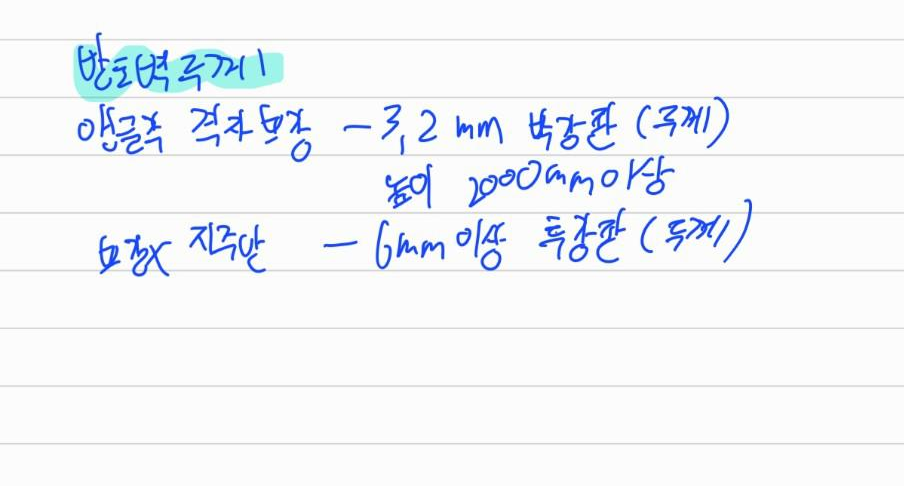 반토벽 두께
앵글측 격자보강 - 3.2mm 박강판 (두께)
높이 2000mm이상
보강x 지주만 - 6mm이상 후강판 (두께)